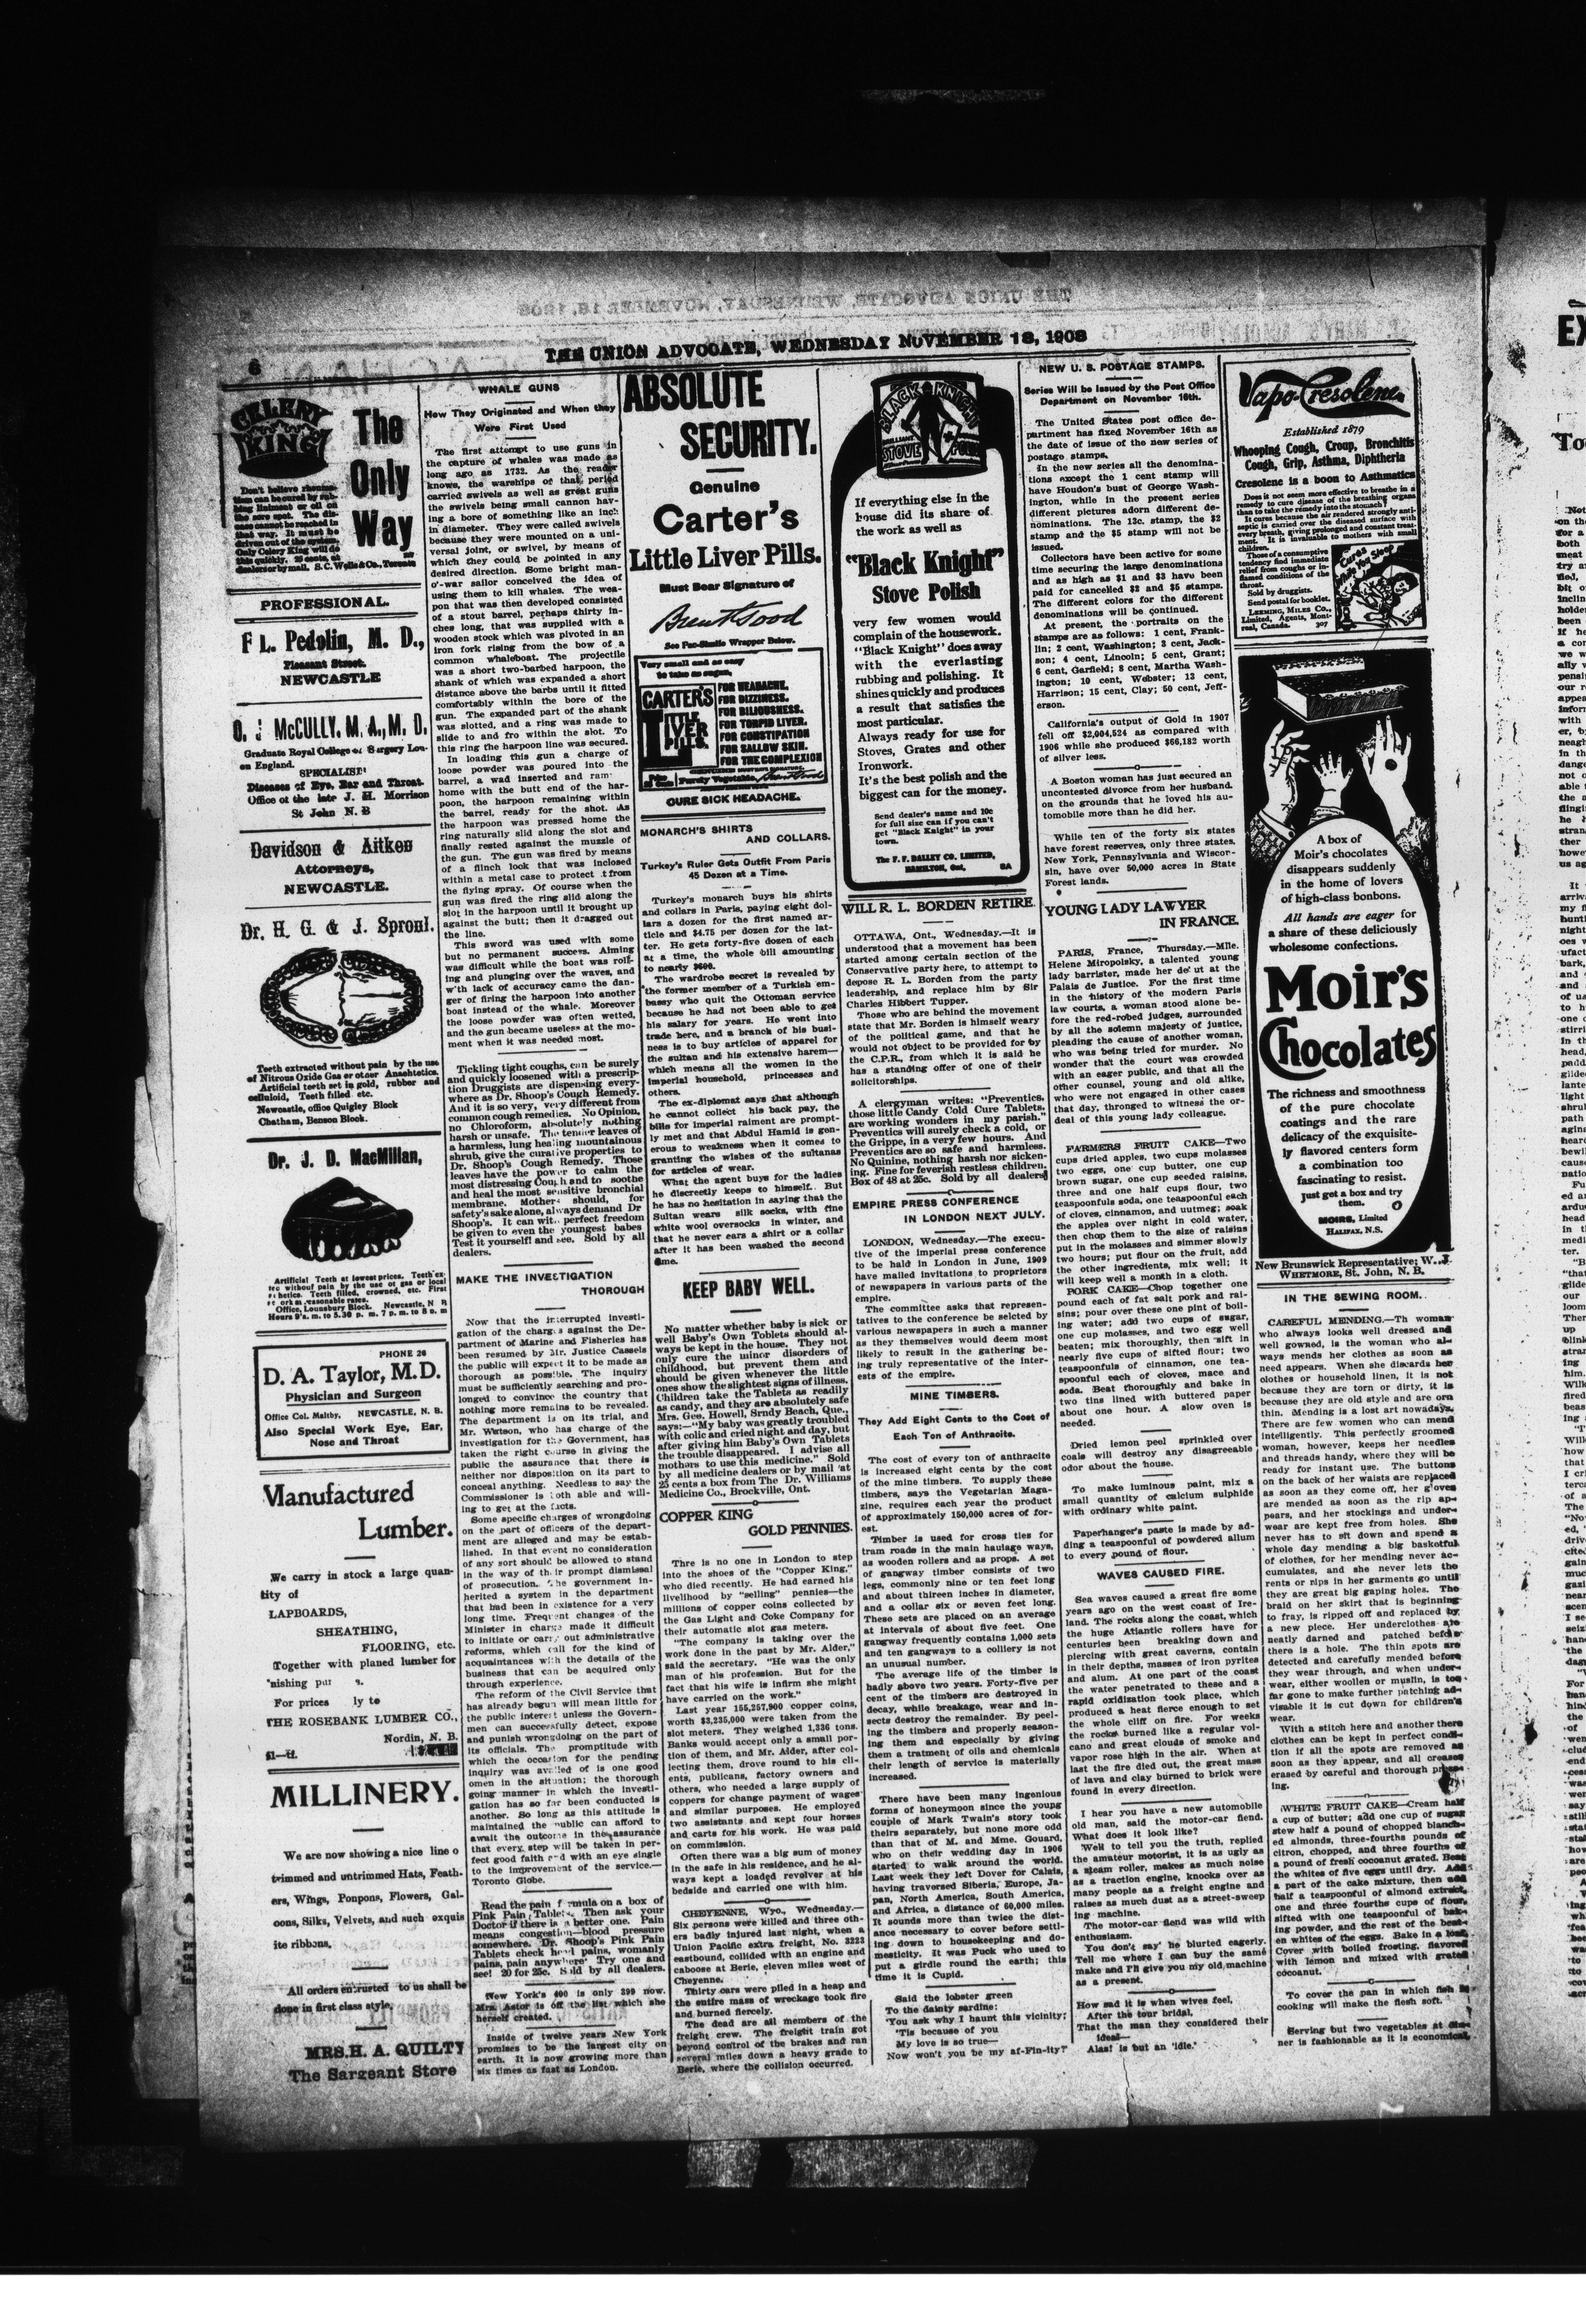 6
THE UNION ADVOCATE, WEDNESDAY NOVEMBER 18, 1908
CELERY KING
The Only Way
Don't believe rheuma-
tism can be cured by rub-
bing liniment or oil on
the sore spot. The dis-
ease cannot be reached in
that way. It must be
driven out of the system.
Only Celery King will do
this quickly. 25 cents, at
dealers or by mail. S. C. Wells & Co., Toronto
PROFESSIONAL.
F L. Pedolin, M. D.,
Pleasant Street.
NEWCASTLE
O. J McCULLY, M. A., M. D.
Graduate Royal College of Surgery Lon-
on England.
SPECIALIST
Diseases of Eye, Ear and Throat.
Office ot the late J. H. Morrison
St John N. B
Davidson & Aitken
Attorneys,
NEWCASTLE.
Dr. H. G. & J. Sproul.
Teeth extracted without pain by the use
of Nitrous Oxide Gas or other Anaehtetics.
Artificial teeth set in gold, rubber and
celluloid, Teeth filled etc.
Newcastle, office Quigley Block
Chatham, Benson Block.
Dr. J. D. MacMillan,
Artificial Teeth at lowest prices. Teeth ex-
Office, Lounsbury Block. Newcastle, N B
Hours 9 a. m. to 5.30 p. m. 7 p. m. to 8 p. m
PHONE 26
D. A. Taylor, M.D.
Physician and Surgeon
Office Col. Maltby, NEWCASTLE, N. B.
Also Special Work Eye, Ear,
Nose and Throat
Manufactured
Lumber.
We carry in stock a large quan-
tity of
LAPBOARDS,
SHEATHING,
FLOORING, etc.
Together with planed lumber for
For prices ly to
THE ROSEBANK LUMBER CO.,
Nordin, N. B.
MILLINERY.
We are now showing a nice line o
trimmed and untrimmed Hats, Feath-
ers, Wings, Ponpons, Flowers, Gal-
oons, Silks, Velvets, and such exquis
ite ribbons.
All orders entrusted to us shall be
done in first class style.
MRS. H. A. QUILTY
The Sargeant Store
WHALE GUNS
How They Originated and When they
Were First Used
The first attempt to use guns in
the capture of whales was made as
long ago as 1732. As the reader
knows, the warships of that period
carried swivels as well as great guns
the swivels being small cannon hav-
ing a bore of something like an inch
in diameter. They were called swivels
because they were mounted on a uni-
versal joint, or swivel, by means of
which they could be pointed in any
desired direction. Some bright man-
o'-war sailor conceived the idea of
using them to kill whales. The wea-
pon that was then developed consisted
of a stout barrel, perhaps thirty in-
ches long, that was supplied with a
wooden stock which was pivoted in an
iron fork rising from the bow of a
common whaleboat. The projectile
was a short two-barbed harpoon, the
shank of which was expanded a short
distance above the barbs until it fitted
comfortably within the bore of the
gun. The expanded part of the shank
was slotted, and a ring was made to
slide to and fro within the slot. To
this ring the harpoon line was secured.
In loading this gun a charge of
loose powder was poured into the
barrel, a wad inserted and ram
home with the butt end of the har-
poon, the harpoon remaining within
the barrel, ready for the shot. As
the harpoon was pressed home the
ring naturally slid along the slot and
finally rested against the muzzle of
the gun. The gun was fired by means
of a flinch look that was inclosed
within a metal case to protect it from
the flying spray. Of course when the
gun was fired the ring slid along the
slot in the harpoon until it brought up
against the butt; then it dragged out
the line.
This sword was used with some
but no permanent success. Aiming
was difficult while the boat was roll-
ing and plunging over the waves, and
with lack of accuracy came the dan-
ger of firing the harpoon into another
boat instead of the whale. Moreover
the loose powder was often wetted,
and the gun became useless at the mo-
ment when it was needed most.
Tickling tight coughs, can be surely
and quickly loosened with a prescrip-
tion Druggists are dispensing every-
where as Dr. Shoop's Cough Remedy.
And it is so very, very different from
common cough remedies. No Opinon,
no Chloroform, absolutely nothing
harsh or unsafe. The tender leaves of
a harmless, lung healing mountainous
shrub, give the curative properties to
Dr. Shoop's Cough Remedy. Those
leaves have the power to calm the
most distressing Cough and to soothe
and heal the most sensitive bronchial
membrane. Mothers should, for
safety's sake alone, always demand Dr
Shoop's. It can with perfect freedom
be given to even the youngest babes
Test it yourself! and see. Sold by all
dealers.
MAKE THE INVESTIGATION
THOROUGH
Now that the interrupted investi-
gation of the charges against the De-
partment of Marine and Fisheries has
been resumed by Mr. Justice Cassels
the public will expect it to be made as
thorough as possible. The inquiry
must be sufficiently searching and pro-
longed to convince the country that
nothing more remains to be revealed.
The department is on its trial, and
Mr. Watson, who has charge of the
investigation for the Government, has
taken the right course in giving the
public the assurance that there is
neither nor disposition on its part to
conceal anything. Needless to say the
Commissioner is both able and will-
ing to get at the facts.
Some specific charges of wrongdoing
on the part of officers of the depart-
ment are alleged and may be estab-
lished. In that event no consideration
of any sort should be allowed to stand
in the way of their prompt dismissal
of prosecution. The government in-
herited a system in the department
that had been in existence for a very
long time. Frequent changes of the
Minister in charge made it difficult
to initiate or carry out administrative
reforms, which call for the kind of
acquaintances with the details of the
business that can be acquired only
through experience.
The reform of the Civil Service that
has already begun will mean little for
the public interest unless the Govern-
men can successfully detect, expose
and punish wrongdoing on the part of
its officials. The promptitude with
which the occasion for the pending
inquiry was availed of is one good
omen in the situation; the thorough
going manner in which the investi-
gation has so far been conducted is
another. So long as this attitude is
maintained the public can afford to
await the outcome in the assurance
that every step will be taken in per-
fect good faith and with an eye single
to the improvement of the service.—
Toronto Globe.
Read the pain formula on a box of
Pink Pain Tablets. Then ask your
Doctor if there is a better one. Pain
means congestion—blood pressure
somewhere. Dr. Shoop's Pink Pain
Tablets check head pains, womanly
pains, pain anywhere. Try one and
see! 20 for 25c. Sold by all dealers.
New York's 400 is only 399 now.
Mrs. Astor is off the list which she
herself created.
Inside of twelve years New York
promises to be the largest city on
earth. It is now growing more than
six times as fast as London.
ABSOLUTE
SECURITY.
Genuine
Carter's
Little Liver Pills.
Must Bear Signature of
Brent Good
See Fac-Simile Wrapper Below.
Very small and as easy
to take as sugar.
CARTER'S LITTLE LIVER PILLS.
FOR HEADACHE.
FOR DIZZINESS.
FOR BILIOUSNESS.
FOR TORPID LIVER.
FOR CONSTIPATION
FOR SALLOW SKIN.
FOR THE COMPLEXION
Purely Vegetable.
CURE SICK HEADACHE.
MONARCH'S SHIRTS
AND COLLARS.
Turkey's Ruler Gets Outfit From Paris
45 Dozen at a Time.
Turkey's monarch buys his shirts
and collars in Paris, paying eight dol-
lars a dozen for the first named ar-
ticle and $4.75 per dozen for the lat-
ter. He gets forty-five dozen of each
at a time, the whole bill amounting
to nearly $600.
The wardrobe secret is revealed by
the former member of a Turkish em-
bassy who quit the Ottoman service
because he had not been able to get
his salary for years. He went into
trade here, and a branch of his busi-
ness is to buy articles of apparel for
the sultan and his extensive harem—
which means all the women in the
imperial household, princesses and
others.
The ex-diplomat says that although
he cannot collect his back pay, the
bills for imperial raiment are prompt-
ly met and that Abdul Hamid is gen-
erous to weakness when it comes to
granting the wishes of the sultanas
for articles of wear.
What the agent buys for the ladies
he discreetly keeps to himself. But
he has no hesitation in saying that the
Sultan wears silk socks, with fine
white wool oversocks in winter, and
that he never ears a shirt or a collar
after it has been washed the second
time.
KEEP BABY WELL.
No matter whether baby is sick or
well Baby's Own Toblets should al-
ways be kept in the house. They not
only cure the minor disorders of
childhood, but prevent them and
should be given whenever the little
ones show the slightest signs of illness.
Children take the Tablets as readily
as candy, and they are absolutely safe
Mrs. Geo. Howell, Srndy Beach, Que.,
says:—"My baby was greatly troubled
with colic and cried night and day, but
after giving him Baby's Own Tablets
the trouble disappeared. I advise all
mothers to use this medicine." Sold
by all medicine dealers or by mail at
25 cents a box from The Dr. Williams
Medicine Co., Brockville, Ont.
COPPER KING
GOLD PENNIES.
Thre is no one in London to step
into the shoes of the "Copper King,"
who died recently. He had earned his
livelihood by "selling" pennies—the
millions of copper coins collected by
the Gas Light and Coke Company for
their automatic slot gas meters.
"The company is taking over the
work done in the past by Mr. Alder,"
said the secretary. "He was the only
man of his profession. But for the
fact that his wife is infirm she might
have carried on the work."
Last year 155,257,900 copper coins,
worth $3,235,000 were taken from the
slot meters. They weighed 1,336 tons.
Banks would accept only a small por-
tion of them, and Mr. Alder, after col-
lecting them, drove round to his cli-
ents, publicans, factory owners and
others, who needed a large supply of
coppers for change payment of wages
and similar purposes. He employed
two assistants and kept four horses
and carts for his work. He was paid
on commission.
Often there was a big sum of money
in the safe in his residence, and he al-
ways kept a loaded revolver at his
bedside and carried one with him.
CHEYENNE, Wyo., Wednesday.—
Six persons were killed and three oth-
ers badly injured last night, when a
Union Pacific extra freight, No. 3223
eastbound, collided with an engine and
caboose at Berie, eleven miles west of
Cheyenne.
Thirty cars were piled in a heap and
the entire mass of wreckage took fire
and burned fiercely.
The dead are all members of the
freight crew. The freight train got
beyond control of the brakes and ran
several miles down a heavy grade to
Berie, where the collision occurred.
BLACK KNIGHT
BRILLIANT
STOVE POLISH
If everything else in the
house did its share of
the work as well as
"Black Knight"
Stove Polish
very few women would
complain of the housework.
"Black Knight" does away
with the everlasting
rubbing and polishing. It
shines quickly and produces
a result that satisfies the
most particular.
Always ready for use for
Stoves, Grates and other
Ironwork.
It's the best polish and the
biggest can for the money.
Send dealer's name and 10c
for full size can if you can't
get "Black Knight" in your
town.
The F. F. DALLEY CO. LIMITED,
HAMILTON, Ont. 8A
WILL R. L. BORDEN RETIRE.
OTTAWA, Ont., Wednesday.—It is
understood that a movement has been
started among certain section of the
Conservative party here, to attempt to
depose R. L. Borden from the party
leadership, and replace him by Sir
Charles Hibbert Tupper.
Those who are behind the movement
state that Mr. Borden is himself weary
of the political game, and that he
would not object to be provided for by
the C.P.R., from which it is said he
has a standing offer of one of their
solicitorships.
A clergyman writes: "Preventics,
those little Candy Cold Cure Tablets,
are working wonders in my parish."
Preventics will surely check a cold, or
the Grippe, in a very few hours. And
Preventics are so safe and harmless.
No Quinine, nothing harsh nor sicken-
ing. Fine for feverish restless children.
Box of 48 at 25c. Sold by all dealers
EMPIRE PRESS CONFERENCE
IN LONDON NEXT JULY.
LONDON, Wednesday.—The execu-
tive of the imperial press conference
to be hald in London in June, 1909
have mailed invitations to proprietors
of newspapers in various parts of the
empire.
The committee asks that represen-
tatives to the conference be selcted by
various newspapers in such a manner
as they themselves would deem most
likely to result in the gathering be-
ing truly representative of the inter-
ests of the empire.
MINE TIMBERS.
They Add Eight Cents to the Cost of
Each Ton of Anthracite.
The cost of every ton of anthracite
is increased eight cents by the cost
of the mine timbers. To supply these
timbers, says the Vegetarian Maga-
zine, requires each year the product
of approximately 150,000 acres of for-
est.
Timber is used for cross ties for
tram roads in the main haulage ways,
as wooden rollers and as props. A set
of gangway timber consists of two
legs, commonly nine or ten feet long
and about thirteen inches in diameter,
and a collar six or seven feet long.
These sets are placed on an average
at intervals of about five feet. One
gangway frequently contains 1,000 sets
and ten gangways to a colliery is not
an unusual number.
The average life of the timber is
hadly above two years. Forty-five per
cent of the timbers are destroyed in
decay, while breakage, wear and in-
sects destroy the remainder. By peel-
ing the timbers and properly season-
ing them and especially by giving
them a tratment of oils and chemicals
their length of service is materially
increased.
There have been many ingenious
forms of honeymoon since the young
couple of Mark Twain's story took
theirs separately, but none more odd
than that of M. and Mme. Gouard,
who on their wedding day in 1906
started to walk around the world.
Last week they left Dover for Calais,
having traversed Siberia, Europe, Ja-
pan, North America, South America,
and Africa, a distance of 60,000 miles.
It sounds more than twice the dist-
ance necessary to cover before settl-
ing down to housekeeping and do-
mesticity. It was Puck who used to
put a girdle round the earth; this
time it is Cupid.
Said the lobster green
To the dainty sardine:
'You ask why I haunt this vicinity;
'Tis because of you
My love is so true—
Now won't you be my af-Fin-ity?'
NEW U. S. POSTAGE STAMPS.
Series Will be Issued by the Post Office
Department on November 16th.
The United States post office de-
partment has fixed November 16th as
the date of issue of the new series of
postage stamps.
In the new series all the denomina-
tions except the 1 cent stamp will
have Houdon's bust of George Wash-
ington, while in the present series
different pictures adorn different de-
nominations. The 13c. stamp, the $2
stamp and the $5 stamp will not be
issued.
Collectors have been active for some
time securing the large denominations
and as high as $1 and $3 have been
paid for cancelled $2 and $5 stamps.
The different colors for the different
denominations will be continued.
At present, the portraits on the
stamps are as follows: 1 cent, Frank-
lin; 2 cent, Washington; 3 cent, Jack-
son; 4 cent, Lincoln; 5 cent, Grant;
6 cent, Garfield; 8 cent, Martha Wash-
ington; 10 cent, Webster; 13 cent,
Harrison; 15 cent, Clay; 50 cent, Jeff-
erson.
California's output of Gold in 1907
fell off $2,004,524 as compared with
1906 while she produced $66,182 worth
of silver less.
A Boston woman has just secured an
uncontested divorce from her husband
on the grounds that he loved his au-
tomobile more than he did her.
While ten of the forty six states
have forest reserves, only three states,
New York, Pennsylvania and Wiscor-
sin, have over 50,000 acres in State
Forest lands.
YOUNG LADY LAWYER
IN FRANCE.
PARIS, France, Thursday.—Mlle.
Helene Miropolsky, a talented young
lady barrister, made her debut at the
Palais de Justice. For the first time
in the history of the modern Paris
law courts, a woman stood alone be-
fore the red-robed judges, surrounded
by all the solemn majesty of justice,
pleading the cause of another woman,
who was being tried for murder. No
wonder that the court was crowded
with an eager public, and that all the
other counsel, young and old alike,
who were not engaged in other cases
that day, thronged to witness the or-
deal of this young lady colleague.
FARMERS FRUIT CAKE—Two
cups dried apples, two cups molasses
two eggs, one cup butter, one cup
brown sugar, one cup seeded raisins,
three and one half cups flour, two
teaspoonfuls soda, one teaspoonful each
of cloves, cinnamon, and uutmeg; soak
the apples over night in cold water,
then chop them to the size of raisins
put in the molasses and simmer slowly
two hours; put flour on the fruit, add
the other ingredients, mix well; it
will keep well a month in a cloth.
PORK CAKE—Chop together one
pound each of fat salt pork and rai-
sins; pour over these one pint of boil-
ing water; add two cups of sugar,
one cup molasses, and two egg well
beaten; mix thoroughly, then sift in
nearly five cups of sifted flour; two
teaspoonfuls of cinnamon, one tea-
spoonful each of cloves, mace and
soda. Beat thoroughly and bake in
two tins lined with buttered paper
about one hour. A slow oven is
needed.
Dried lemon peel sprinkled over
coals will destroy any disagreeable
odor about the house.
To make luminous paint, mix a
small quantity of calcium sulphide
with ordinary white paint.
Paperhanger's paste is made by ad-
ding a teaspoonful of powdered allum
to every pound of flour.
WAVES CAUSED FIRE.
Sea waves caused a great fire some
years ago on the west coast of Ire-
land. The rocks along the coast, which
the huge Atlantic rollers have for
centuries been breaking down and
piercing with great caverns, contain
in their depths, masses of iron pyrites
and alum. At one part of the coast
the water penetrated to these and a
rapid oxidization took place, which
produced a heat fierce enough to set
the whole cliff on fire. For weeks
the rocks burned like a regular vol-
cano and great clouds of smoke and
vapor rose high in the air. When at
last the fire died out, the great mass
of lava and clay burned to brick were
found in every direction.
I hear you have a new automobile
old man, said the motor-car fiend.
What does it look like?
'Well to tell you the truth, replied
the amateur motorist, it is as ugly as
a steam roller, makes as much noise
as a traction engine, knocks over as
many people as a freight engine and
raises as much dust as a street-sweep
ing machine.
The motor-car fiend was wild with
enthusiasm.
'You don't say' he blurted eagerly.
'Tell me where I can buy the same
make and I'll give you my old machine
as a present.
How sad it is when wives feel,
After the tour bridal,
That the man they considered their
ideal—
Alas! is but an 'idle.'
Vapo-Cresolene
Established 1879
Whooping Cough, Croup, Bronchitis
Cough, Grip, Asthma, Diphtheria
Cresolene is a boon to Asthmatics
Does it not seem more effective to breathe in a
remedy to cure disease of the breathing organs
than to take the remedy into the stomach?
It cures because the air rendered strongly anti-
septic is carried over the diseased surface with
every breath, giving prolonged and constant treat-
ment. It is invaluable to mothers with small
children.
Those of a consumptive
tendency find immediate
relief from coughs or in-
flamed conditions of the
throat.
Sold by druggists.
Send postal for booklet.
LEEMING, MILES CO.,
Limited, Agents, Mont-
real, Canada. 307
Cures While You Sleep
A box of
Moir's chocolates
disappears suddenly
in the home of lovers
of high-class bonbons.
All hands are eager for
a share of these deliciously
wholesome confections.
Moir's
Chocolates
The richness and smoothness
of the pure chocolate
coatings and the rare
delicacy of the exquisite-
ly flavored centers form
a combination too
fascinating to resist.
Just get a box and try
them.
MOIRS, Limited
HALIFAX, N.S.
New Brunswick Representative; W. J.
WHETMORE, St. John, N. B.
IN THE SEWING ROOM.
CAREFUL MENDING.—Th woman
who always looks well dressed and
well gowned, is the woman who al-
ways mends her clothes as soon as
need appears. When she discards her
clothes or household linen, it is not
because they are torn or dirty, it is
because they are old style and are orn
thin. Mending is a lost art nowadays.
There are few women who can mend
intelligently. This perfectly groomed
woman, however, keeps her needles
and threads handy, where they will be
ready for instant use. The buttons
on the back of her waists are replaced
as soon as they come off, her gloves
are mended as soon as the rip ap-
pears, and her stockings and under-
wear are kept free from holes. She
never has to sit down and spend a
whole day mending a big basketful
of clothes, for her mending never ac-
cumulates, and she never lets the
rents or rips in her garments go until
they are great big gaping holes. The
braid on her skirt that is beginning
to fray, is ripped off and replaced by
a new piece. Her underclothes are
neatly darned and patched before
there is a hole. The thin spots are
detected and carefully mended before
they wear through, and when under-
wear, either woollen or muslin, is too
far gone to make further patching ad-
visable it is cut down for children's
wear.
With a stitch here and another there
clothes can be kept in perfect condi-
tion if all the spots are removed as
soon as they appear, and all creases
erased by careful and thorough press-
ing.
WHITE FRUIT CAKE—Cream half
a cup of butter; add one cup of sugar
stew half a pound of chopped blanch-
ed almonds, three-fourths pounds of
citron, chopped, and three fourths of
a pound of fresh cocoanut grated. Beat
the whites of five eggs until dry. Add
a part of the cake mixture, then add
half a teaspoonful of almond extract,
one and three fourths cups of flour,
sifted with one teaspoonful of bak-
ing powder, and the rest of the beat-
en whites of the eggs. Bake in a loaf.
Cover with boiled frosting, flavored
with lemon and mixed with grated
cocoanut.
To cover the pan in which fish is
cooking will make the flesh soft.
Serving but two vegetables at din-
ner is fashionable as it is economical.